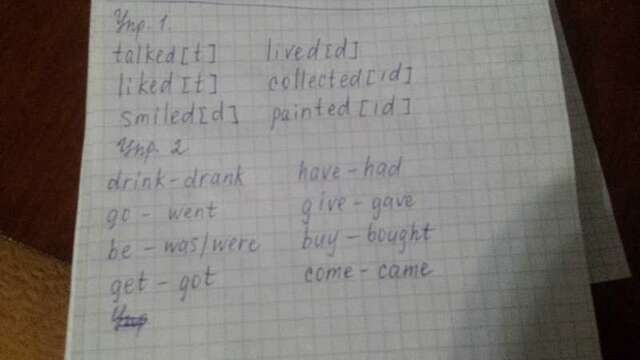 Упр. 1.
talked [t] lived [d]
liked [t] collected [id]
smiled [d] painted [id]
Упр. 2
drink - drank have - had
go - went give - gave
be - was/were buy - bought
get - got come - came